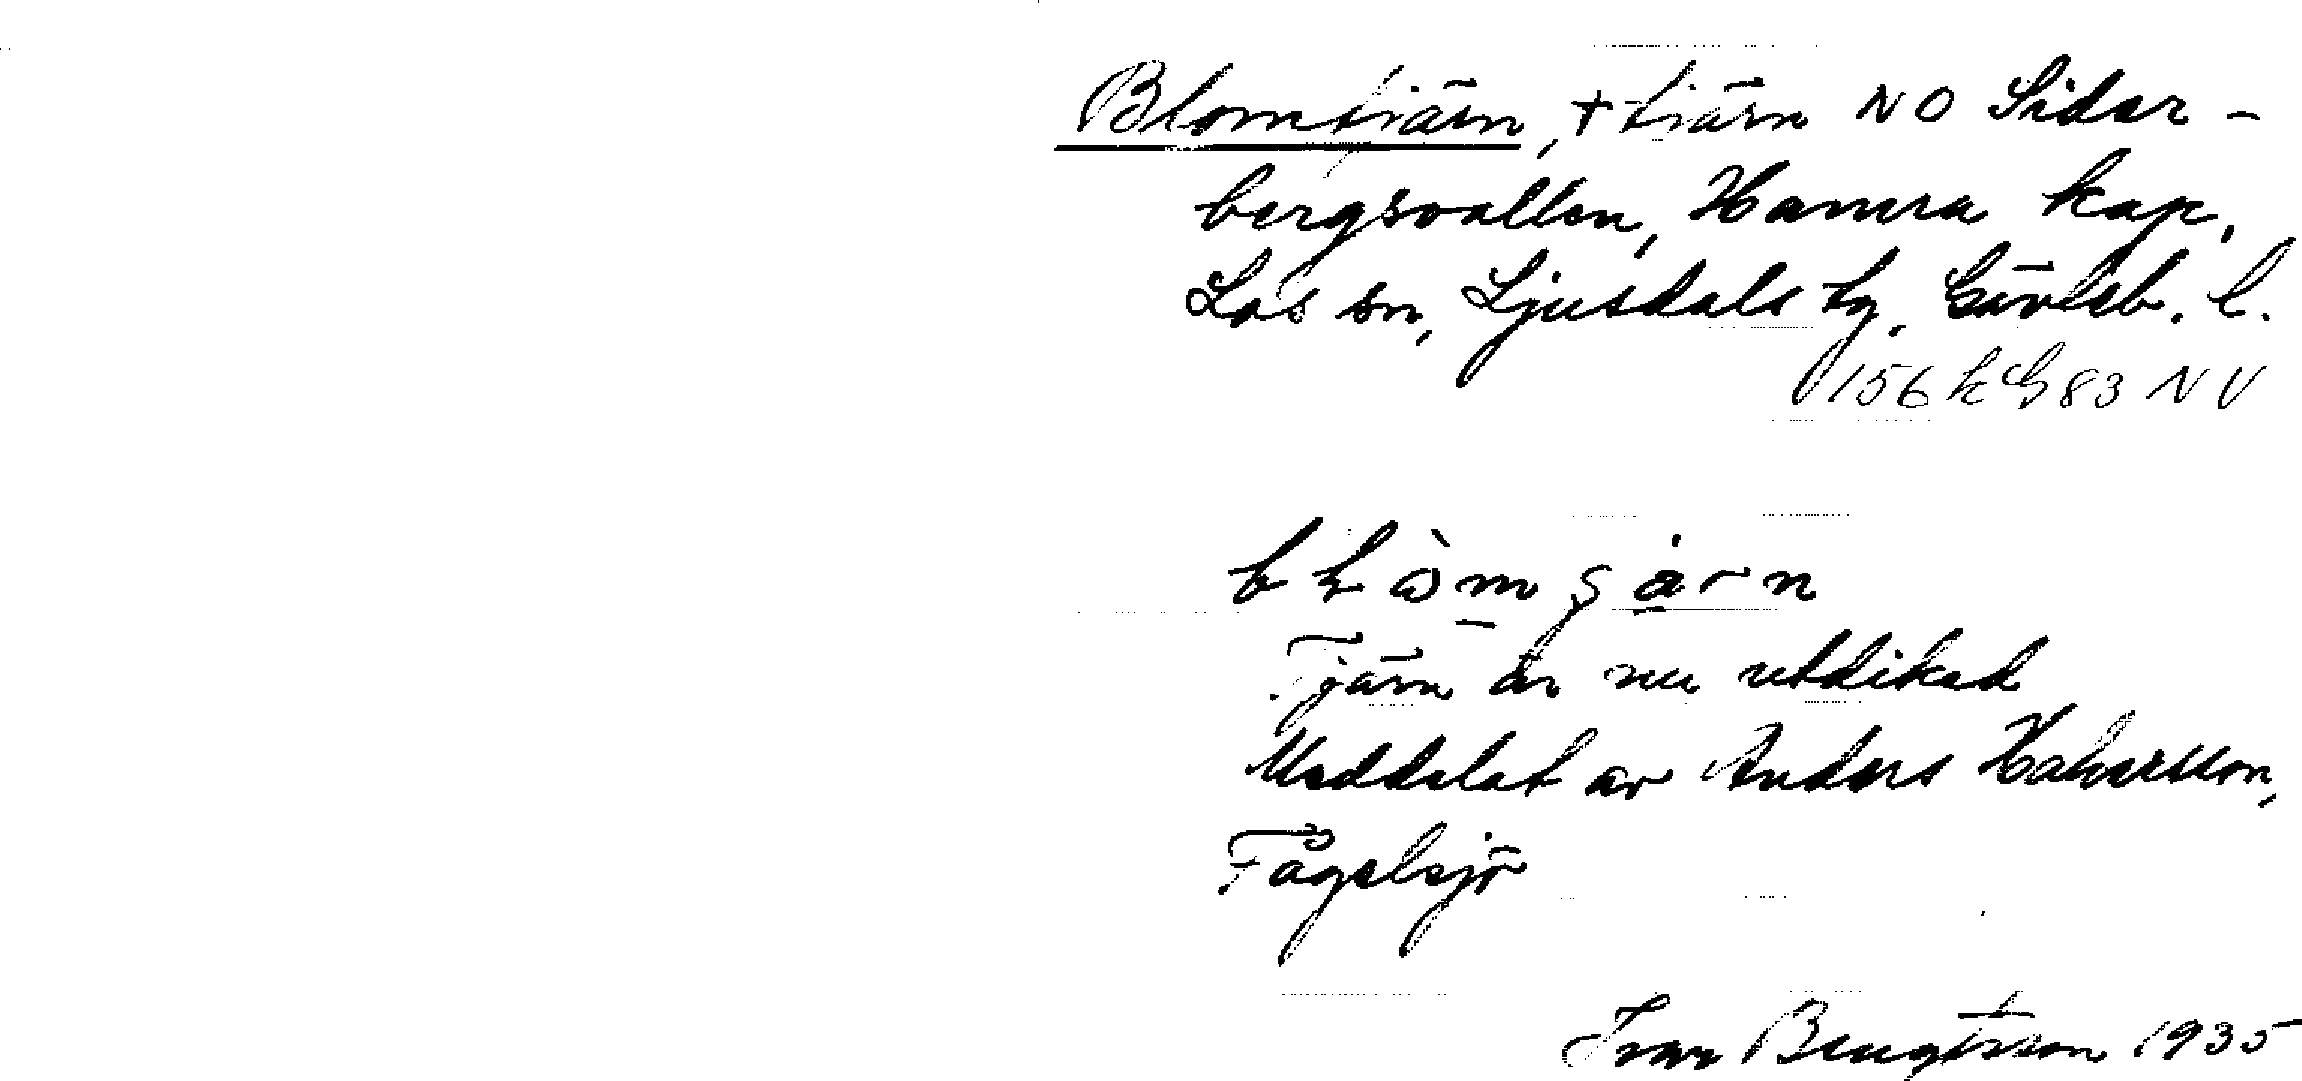 Blomtjärn, + tjärn NO Sider-
bergsvallen, Hamra kap,
Los sn, Ljusdals tg, Gävleb. l.
156 k G 83 NV
Tjärn är nu utdikad
Meddelat av Anders Halvarsson,
Fågelsjö
Ivar Bengtsson 1935